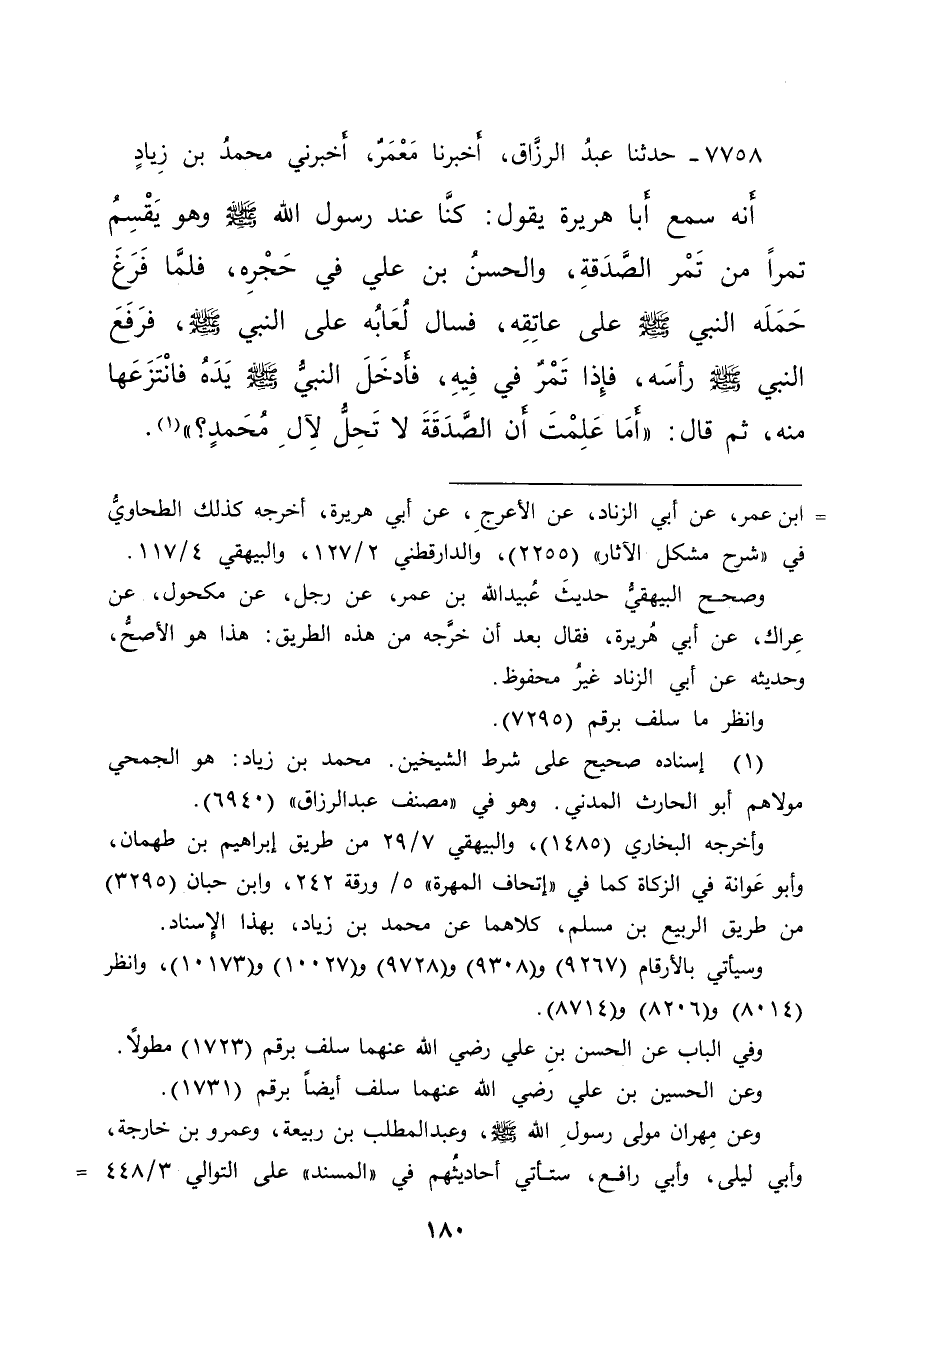 ٧٧٥٨ـ حدثنا عبدُ الرزَّاق، أَخبرنا مَعْمَرٌ، أَخبرني محمدُ بن زِيادٍ
أَنه سمع أَبا هريرة يقول: كنَّا عند رسول الله ﷺ وهو يَقْسِمُ
تمراً من تَمْر الصَّدَقةِ، والحسنُ بن علي في حَجْرِه، فلمَّا فَرَغَ
حَمَلَه النبي ﷺ على عاتِقِه، فسال لُعَابُه على النبي ﷺ، فرَفَعَ
النبي ﷺ رأسَه، فإِذا تَمْرٌ في فِيهِ، فأَدخَلَ النبيُّ ﷺ يَدَهُ فانْتَزَعَها
منه، ثم قال: «أَمَا عَلِمْتَ أَن الصَّدَقَةَ لا تَحِلُّ لِآلِ مُحَمدٍ؟»(١).
= ابن عمر، عن أبي الزناد، عن الأعرجِ، عن أبي هريرة، أخرجه كذلك الطحاويُّ
في «شرح مشكل الآثار» (٢٢٥٥)، والدارقطني ١٢٧/٢، والبيهقي ١١٧/٤.
وصحح البيهقيُّ حديثَ عُبيدالله بن عمر، عن رجل، عن مكحول، عن
عِراك، عن أبي هُريرة، فقال بعد أن خرَّجه من هذه الطريق: هذا هو الأصحُّ،
وحديثه عن أبي الزناد غيرُ محفوظ.
وانظر ما سلف برقم (٧٢٩٥).
(١) إسناده صحيح على شرط الشيخين. محمد بن زياد: هو الجمحي
مولاهم أبو الحارث المدني. وهو في «مصنف عبدالرزاق» (٦٩٤٠).
وأخرجه البخاري (١٤٨٥)، والبيهقي ٢٩/٧ من طريق إبراهيم بن طهمان،
وأبو عَوانة في الزكاة كما في «إتحاف المهرة» ٥/ ورقة ٢٤٢، وابن حبان (٣٢٩٥)
من طريق الربيع بن مسلم، كلاهما عن محمد بن زياد، بهذا الإسناد.
وسيأتي بالأرقام (٩٢٦٧) و(٩٣٠٨) و(٩٧٢٨) و(١٠٠٢٧) و(١٠١٧٣)، وانظر
(٨٠١٤) و(٨٢٠٦) و(٨٧١٤).
وفي الباب عن الحسن بنِ علي رضي الله عنهما سلف برقم (١٧٢٣) مطولاً.
وعن الحسين بن علي رضي الله عنهما سلف أيضاً برقم (١٧٣١).
وعن مِهران مولى رسولِ الله ﷺ، وعبدالمطلب بن ربيعة، وعمرو بن خارجة،
وأبي ليلى، وأبي رافع، ستأتي أحاديثُهم في «المسند» على التوالي ٤٤٨/٣ =
١٨٠